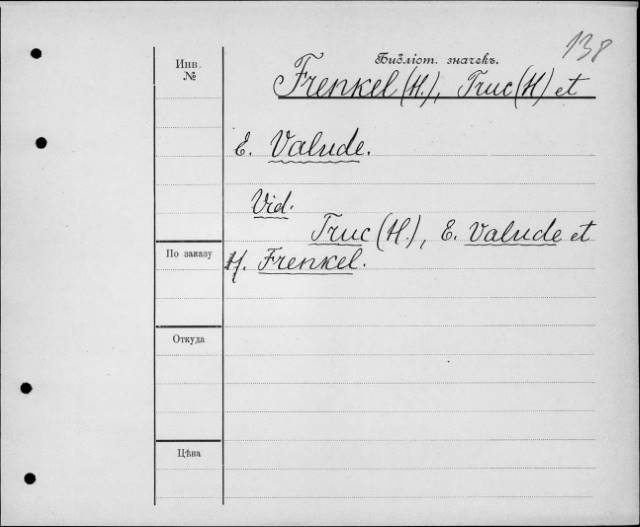 138
Инв. №
Библіот. значекъ.
Frenkel (H.), Truc (H) et
E. Valude.
Vid.
Truc (H.), E. Valude et
По заказу
H. Frenkel.
Откуда
Цѣна